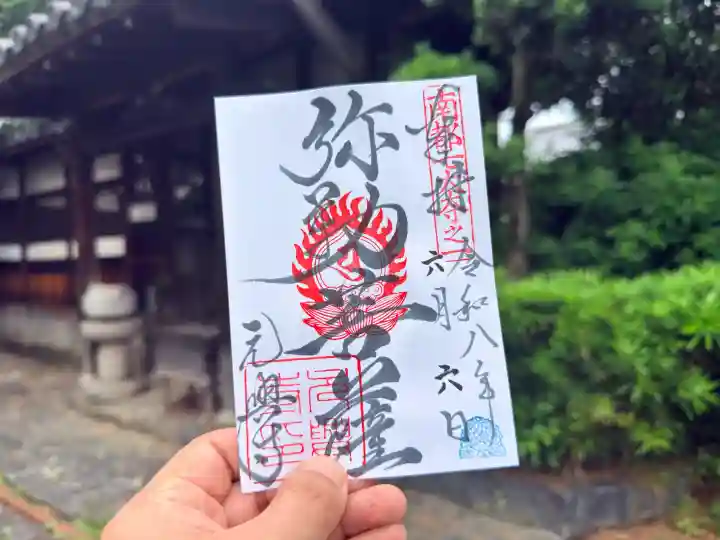 奉拝
南都
令和八年
六月六日
弥勒菩薩
元興寺